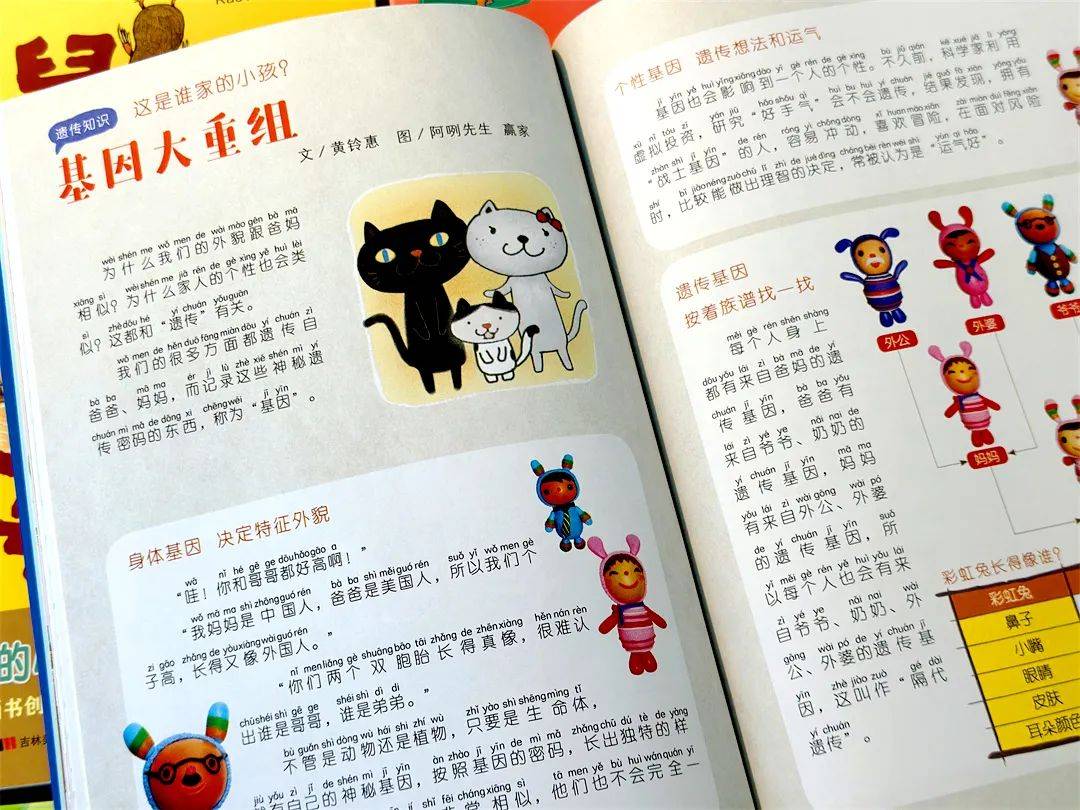 这是谁家的小孩?
遗传知识
基因大重组
文/黄铃惠 图/阿咧先生 赢家
wèi shén me wǒ men de wài mào gēn bà mā
为什么我们的外貌跟爸妈
xiāng sì wèi shén me jiā rén de gè xìng yě huì lèi
相似?为什么家人的个性也会类
sì zhè dōu hé yí chuán yǒu guān
似?这都和“遗传”有关。
wǒ men de hěn duō fāng miàn dōu yí chuán zì
我们的很多方面都遗传自
bà ba mā ma ér jì lù zhè xiē shén mì yí
爸爸、妈妈,而记录这些神秘遗
chuán mì mǎ de dōng xi chēng wéi jī yīn
传密码的东西,称为“基因”。
身体基因 决定特征外貌
wà nǐ hé gē ge dōu hǎo gāo a
“哇!你和哥哥都好高啊!”
wǒ mā ma shì zhōng guó rén bà ba shì měi guó rén suǒ yǐ wǒ men gè
“我妈妈是中国人,爸爸是美国人,所以我们个
zi gāo zhǎng de yòu xiàng wài guó rén
子高,长得又像外国人。”
nǐ men liǎng gè shuāng bāo tāi zhǎng de zhēn xiàng hěn nán rèn
“你们两个双胞胎长得真像,很难认
chū shéi shì gē ge shéi shì dì di
出谁是哥哥,谁是弟弟。”
bù guǎn shì dòng wù hái shi zhí wù zhǐ yào shì shēng mìng tǐ
不管是动物还是植物,只要是生命体,
jiù yǒu zì jǐ de shén mì jī yīn àn zhào jī yīn de mì mǎ zhǎng chū dú tè de yàng
就有自己的神秘基因,按照基因的密码,长出独特的样
jī yīn shǐ fēi cháng xiāng sì tā men yě bù huì wán quán yí
非常相似,他们也不会完全一
个性基因 遗传想法和运气
jī yīn yě huì yǐng xiǎng dào yí gè rén de gè xìng bù jiǔ qián kē xué jiā lì yòng
基因也会影响到一个人的个性。不久前,科学家利用
xū nǐ tóu zī yán jiū hǎo shǒu qì huì bu huì yí chuán jié guǒ fā xiàn yōng yǒu
虚拟投资,研究“好手气”会不会遗传,结果发现,拥有
zhàn shì jī yīn de rén róng yì chōng dòng xǐ huan mào xiǎn zài miàn duì fēng xiǎn
“战士基因”的人,容易冲动,喜欢冒险,在面对风险
shí bǐ jiào néng zuò chū lǐ zhì de jué dìng cháng bèi rèn wéi shì yùn qì hǎo
时,比较能做出理智的决定,常被认为是“运气好”。
遗传基因
按着族谱找一找
měi gè rén shēn shàng
每个人身上
dōu yǒu lái zì bà mā de yí
都有来自爸妈的遗
chuán jī yīn bà ba yǒu
传基因,爸爸有
lái zì yé ye nǎi nai de
来自爷爷、奶奶的
yí chuán jī yīn mā ma
遗传基因,妈妈
yǒu lái zì wài gōng wài pó
有来自外公、外婆
de yí chuán jī yīn suǒ
的遗传基因,所
yǐ měi gè rén yě huì yǒu lái
以每个人也会有来
zì yé ye nǎi nai wài
自爷爷、奶奶、外
gōng wài pó de yí chuán jī
公、外婆的遗传基
yīn zhè jiào zuò gé dài
因,这叫作“隔代
yí chuán
遗传”。
外公
外婆
爷爷
妈妈
彩虹兔长得像谁?
彩虹兔
鼻子
小嘴
眼睛
皮肤
耳朵颜色
书创
吉林